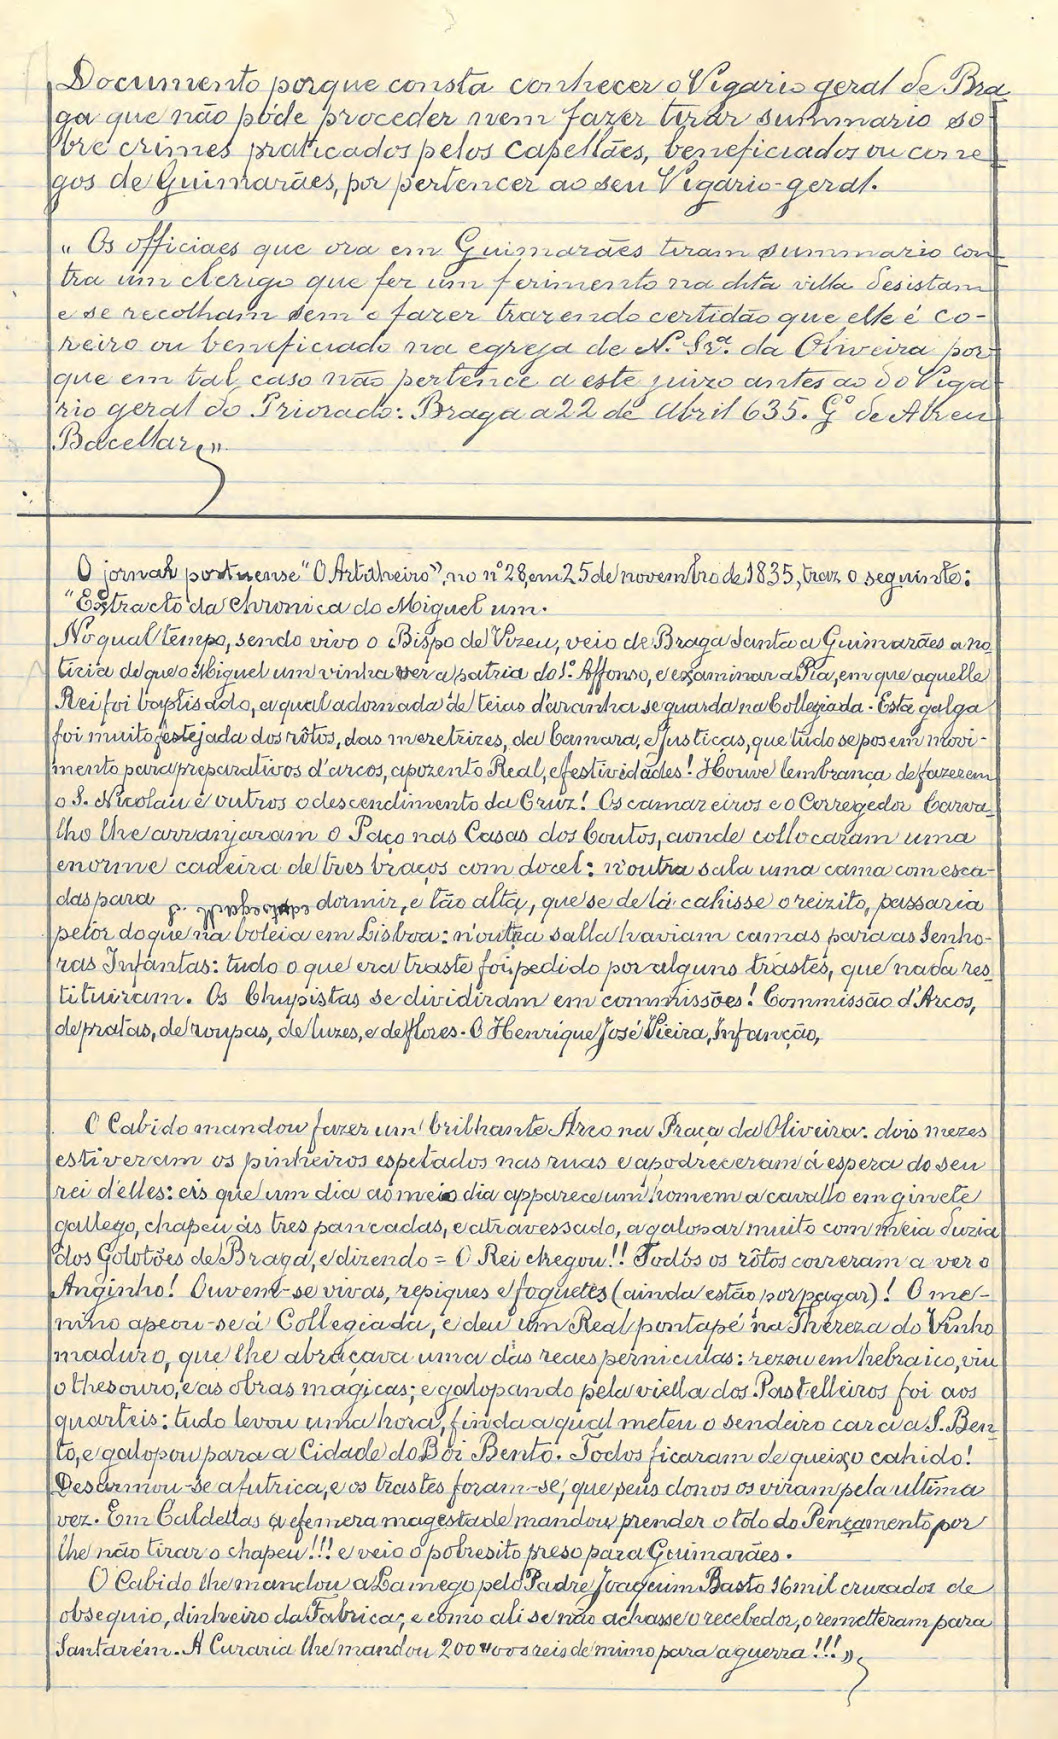 Documento porque consta conhecer o Vigario geral de Bra
ga que não póde proceder nem fazer tirar summario so-
bre crimes praticados pelos capellães, beneficiados ou cone-
gos de Guimarães, por pertencer ao seu Vigario-geral.
"Os officiaes que ora em Guimarães tiram summario con-
tra um clerigo que fez um ferimento na dita villa desistam
e se recolham sem o fazer trazendo certidão que elle é co-
reiro ou beneficiado na egreja de N. Srª. da Oliveira por-
que em tal caso não pertence a este juizo antes ao do Viga-
rio geral do Priorado: Braga a 22 de Abril 635. Gº de Abreu
Bacellar,"
O jornal portuense "O Artilheiro", no nº 28, em 25 de novembro de 1835, traz o seguinte:
"Extracto da Chronica do Miguel um.
No qual tempo, sendo vivo o Bispo de Vizeu, veio de Braga Santa a Guimarães a no
ticia de que o Miguel um vinha ver a patria do 1º. Affonso, e examinar a Pia, em que aquelle
Rei foi baptisado, a qual adornada de teias d'aranha se guarda na Collegiada. Esta galga
foi muito festejada dos rôtos, das meretrizes, da Camara, e Justiças, que tudo se pos em movi-
mento para preparativos d'arcos, apozento Real, e festividades! Houve lembrança de fazerem
o S. Nicolau e outros o descendimento da Cruz! Os camareiros e o Corregedor Carva-
lho lhe arranjaram o Paço nas Casas dos Coutos, aonde collocaram uma
enorme cadeira de tres braços com docel: n'outra sala uma cama com esca-
das para dormir, e tão alta, que se de lá cahisse o reizito, passaria
peior do que na boleia em Lisboa: n'outra salla haviam camas para as Senho-
ras Infantas: tudo o que era traste foi pedido por alguns trastes, que nada res
tituiram. Os Chupistas se dividiram em commissões! Commissão d'Arcos,
de pratas, de roupas, de luzes, e de flores. O Henrique José Vieira, Infanção,
O Cabido mandou fazer um brilhante Arco na Praça da Oliveira. dois mezes
estiveram os pinheiros espetados nas ruas e apodreceram á espera do seu
rei d'elles: eis que um dia ao meio dia apparece um homem a cavallo em ginete
gallego, chapeu ás tres pancadas, e atravessado, a galopar muito com meia duzia
dos Golotões de Braga, e dizendo = O Rei chegou!! Todos os rôtos correram a ver o
Anginho! Ouvem-se vivas, repiques e foguetes (ainda estão por pagar)! O me-
nino apeou-se á Collegiada, e deu um Real pontapé na Thereza do Vinho
maduro, que lhe abraçava uma das reaes perniculas: rezou em hebraico, viu
o thesouro, e as obras magicas; e galopando pela viella dos Pastelleiros foi aos
quarteis: tudo levou uma hora, finda a qual meteu o sendeiro cara a S. Ben-
to, e galopou para a Cidade do Boi Bento. Todos ficaram de queixo cahido!
Desarmou-se a futrica, e os trastes foram-se, que seus donos os viram pela ultima
vez. Em Caldellas a efemera magestade mandou prender o tolo do Pençamento por
lhe não tirar o chapeu!!! e veio o pobresito preso para Guimarães.
O Cabido lhe mandou a Lamego pelo Padre Joaquim Basto 16 mil cruzados de
obsequio, dinheiro da Fabrica; e como ali se não achasse o recebedor, o remetteram para
Santarém. A Curaria lhe mandou 200"000 reis de mimo para a guerra!!!"